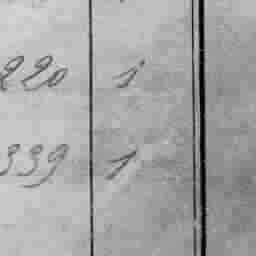 220 1
339 1